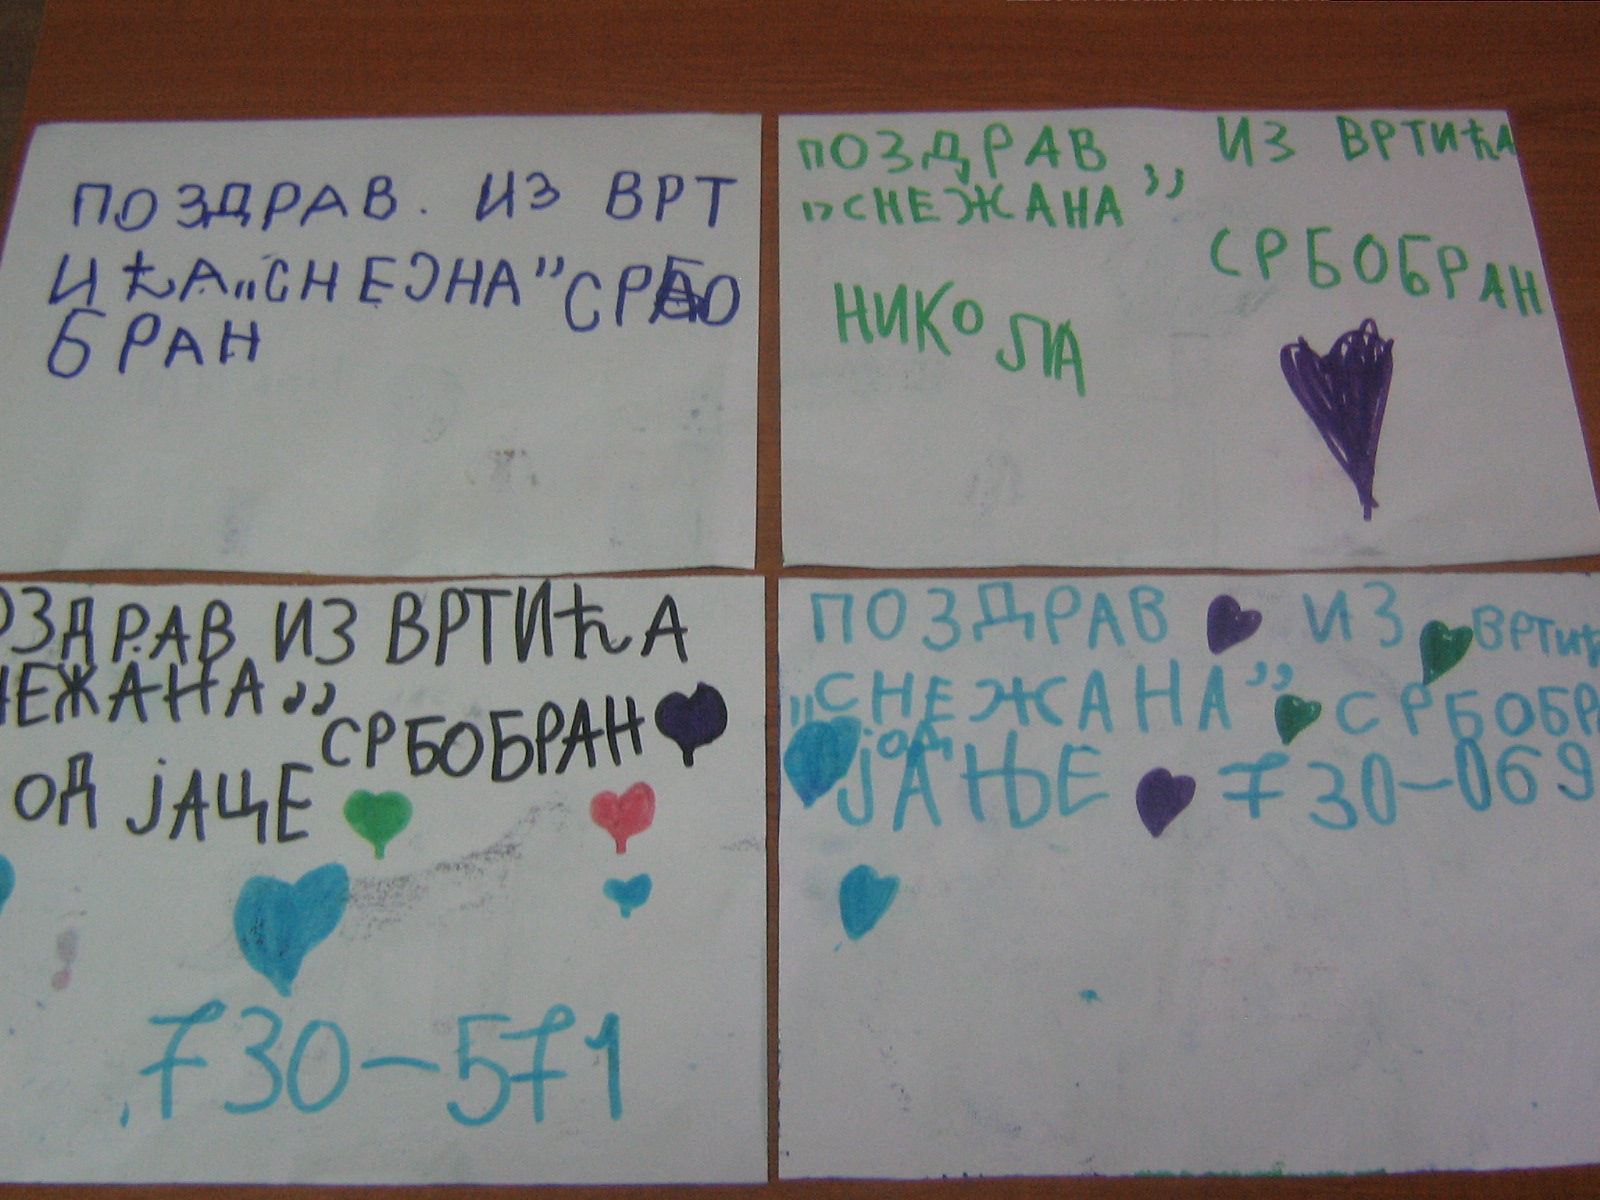 ПОЗДРАВ. ИЗ ВРТ
ИЋА„СНЕЈНА” СРБО
БРАН
ПОЗДРАВ ИЗ ВРТИЋА
„СНЕЖАНА”
СРБОБРАН
НИКОЛА
ОЗДРАВ ИЗ ВРТИЋА
НЕЖАНА”
СРБОБРАН
ОД ЈАЦЕ
730-571
ПОЗДРАВ ИЗ ВРТИЋ
„СНЕЖАНА” СРБОБРА
јОД
ЈАЊЕ 730-069